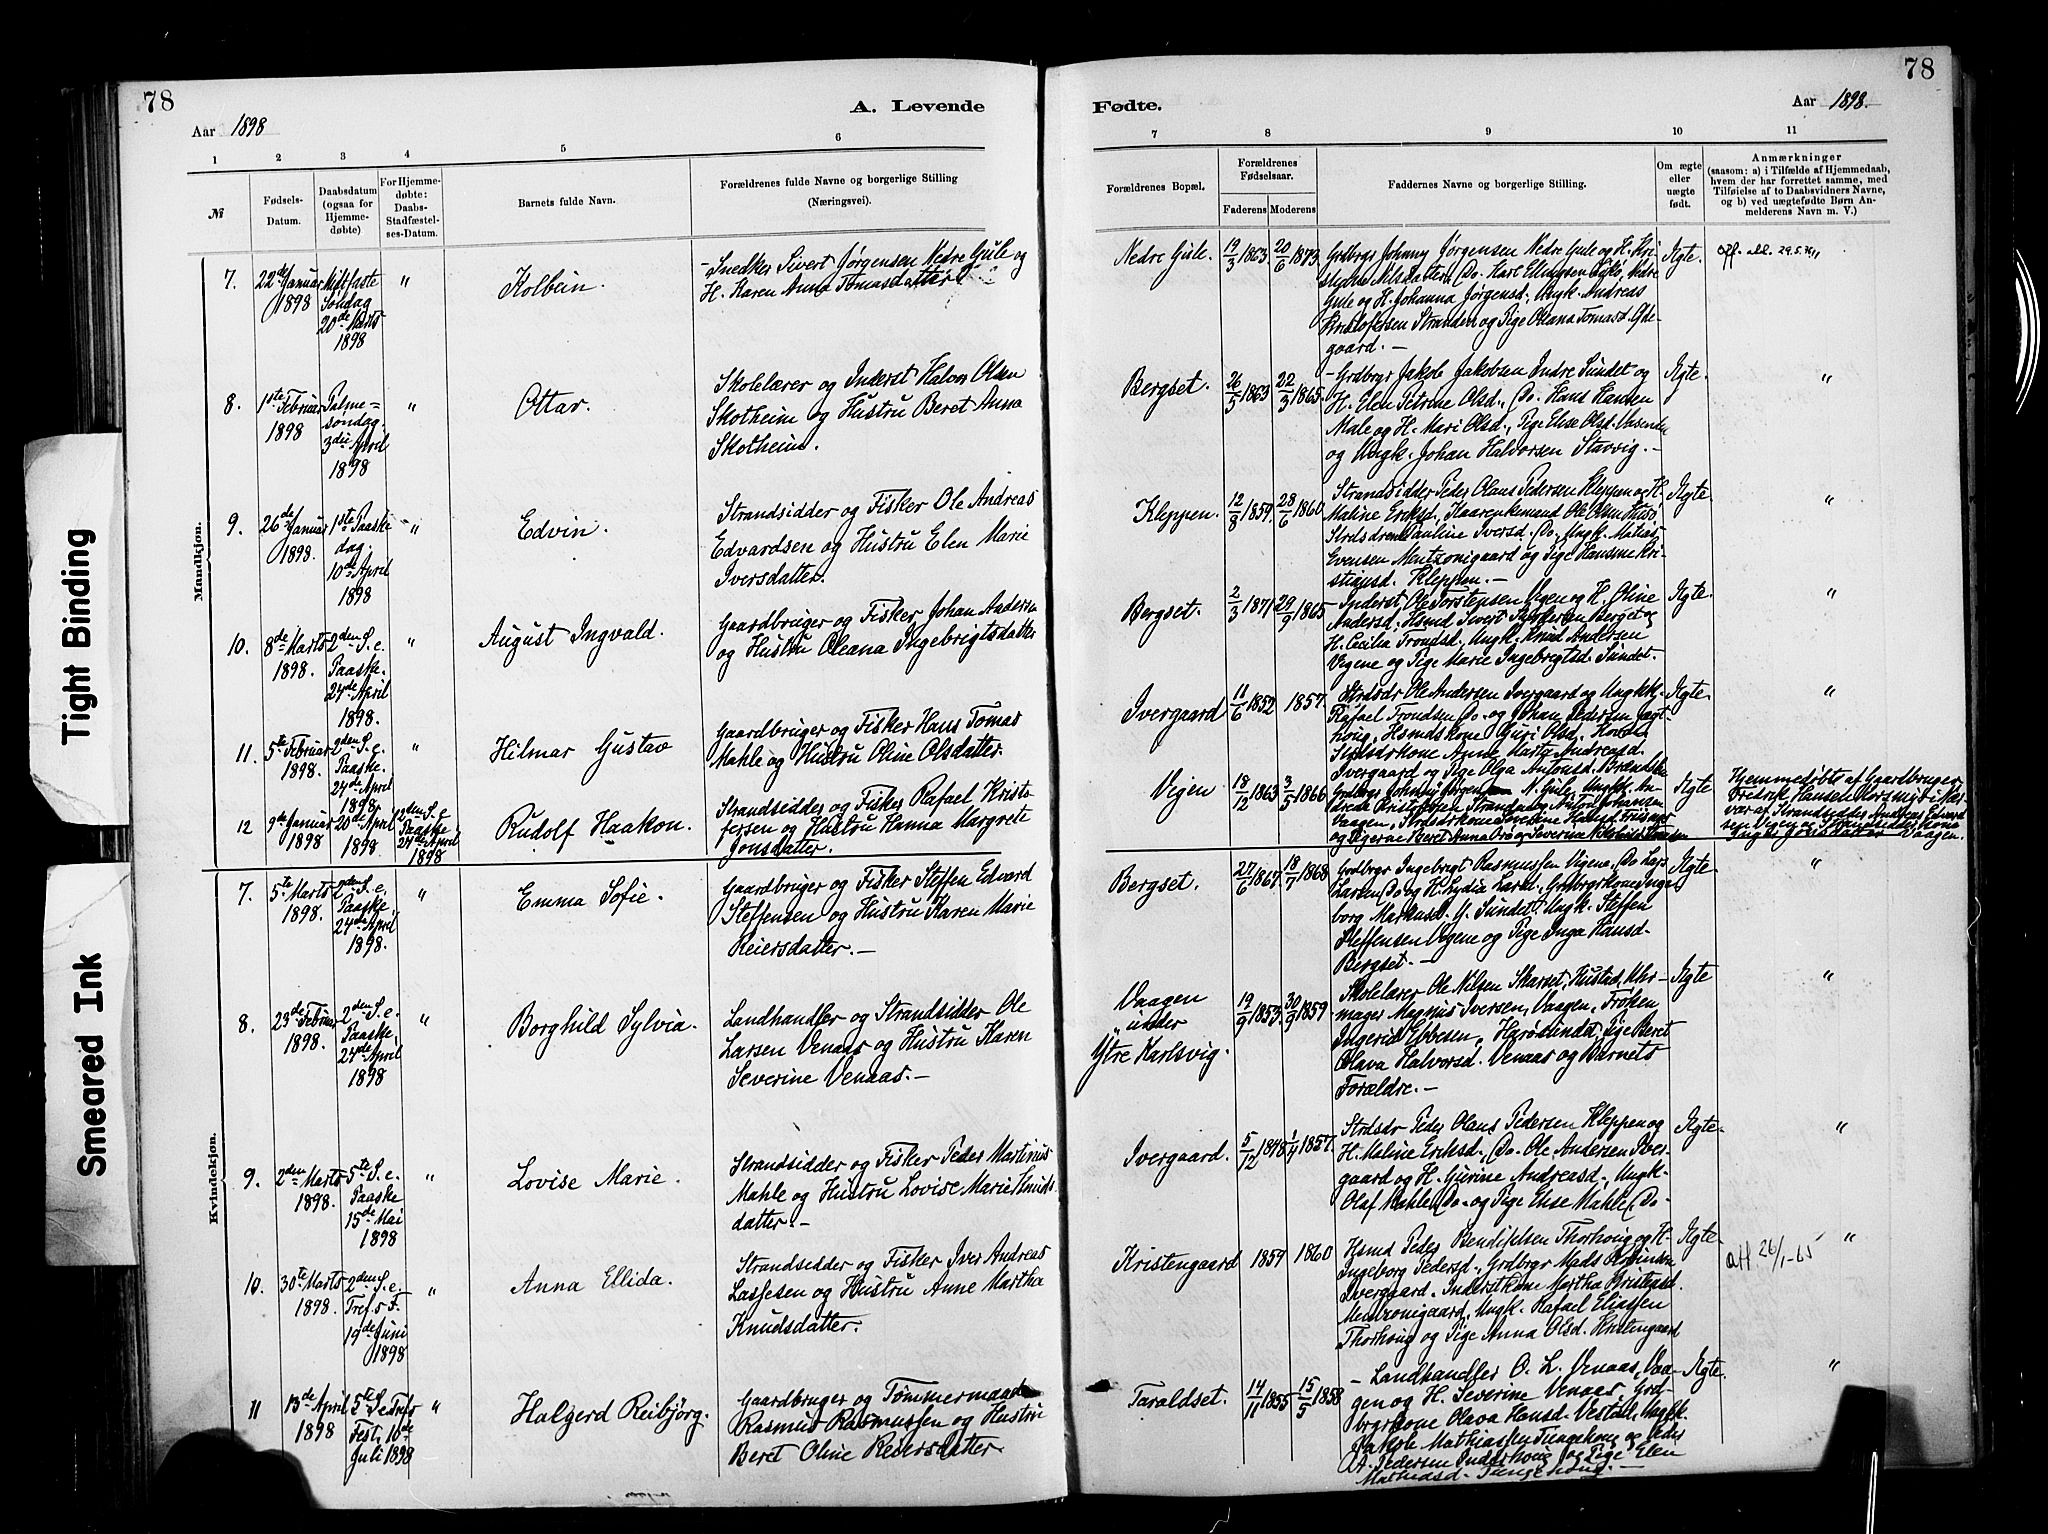 78
A. Levende
Aar 1898
1 2 3 4 5 6
№
Fødsels-
Datum.
Daabsdatum
(ogsaa for
Hjemme-
døbte)
For Hjemme-
døbte:
Daabs-
Stadfæstel-
ses-Datum.
Barnets fulde Navn.
Forældrenes fulde Navne og borgerlige Stilling
(Næringsvei).
Mandkjøn.
7. 22de Januar 1898 Midtfaste Søndag 20de Marts 1898 " Kolbein.
Snedker Sivert Jørgensen Nedre Gule og
H. Karen Anna Tomasdatter
8. 1ste Februar 1898 Palme=søndag. 3die April 1898 " Ottar.
Skolelærer og Inderst Halvor Olsen
Skotheim og Hustru Beret Anna
Skotheim.
9. 26de Januar 1898. 1ste Paaske dag 10de April 1898 " Edvin.
Strandsidder og Fisker Ole Andreas
Edvardsen og Hustru Elen Marie
Iversdatter.
10. 8de Marts 1898. 2den S. e. Paaske. 24de April 1898. " August Ingvald.
Gaardbruger og Fisker Johan Andersen
og Hustru Oleana Ingebrigtsdatter
11. 5te Februar 1898. 2den S. e. Paaske. 24de April 1898. " Hilmar Gustav
Gaardbruger og Fisker Hans Tomas
Mahle og Hustru Oline Olsdatter.
12 9de Januar 1898 20de April 1898. 2den S. e Paaske 24de April 1898 Rudolf Haakon.
Strandsidder og Fisker Rafael Kristo
fersen og Hustru Hanna Margrete
Jonsdatter.
Kvindekjøn.
7. 5te Marts 1898. 2den S. e. Paaske. 24de April 1898. " Emma Sofie.
Gaardbruger og Fisker Steffen Edvard
Steffensen og Hustru Karen Marie
Reiersdatter. —
8. 23de Februar 1898. 2den S. e. Paaske 24de April 1898 " Borghild Sylvia.
Landhandler og Strandsidder Ole
Larsen Venaas og Hustru Karen
Severine Venaas. —
9. 2den Marts 1898. 5te S. e. Paaske 15de Mai 1898 " Lovise Marie.
Strandsidder og Fisker Peder Martinus
Mahle og Hustru Lovise Marie Knuds
datter. —
10. 30te Marts 1898. 2den S. e. Tref. s F. 19de Juni 1898 " Anna Ellida.
Strandsidder og Fisker Iver Andreas
Lassesen og Hustru Anne Martha
Knudsdatter.
11 13de April 1898 5te S. e Trefs Fest. 10de Juli 1898 " Halgerd Reibjörg.
Gaardbruger og Tømmermand
Rasmus Rasmussen og Hustru
Beret Oline Reiersdatter.
78
Fødte.
Aar 1898.
7 8 9 10 11
Forældrenes Bopæl.
Forældrenes
Fødselsaar.
Faderens Moderens
Faddernes Navne og borgerlige Stilling
Om ægte
eller
uægte
født.
Anmærkninger
(saasom: a) i Tilfælde af Hjemmedaab,
hvem der har forrettet samme, med
Tilføielse af to Daabsvidners Navne,
og b) ved uægtefødte Børn An-
melderens Navn m. V.)
Nedre Gule. 19/3 1863. 20/6 1873.
Grdbrgr Johnny Jørgensen Nedre Gule og H. Kri-
stine Nilsdatter, Do. Karl Ellingsen Sælø, Nedre
Gule og H. Johanna Jørgensd., Ungk. Andreas
Kristofersen Stranden og Pige Oliana Tomasd.
gaard. —
Ægte.
Bergset. 26/5 1863 22/3 1865.
Grdbrgr Jakob Jakobsen Indre Sundet og
H. Elen Petrine Olsd., Do. Hans Hansen
Male og H. Mari Olsd., Pige Elise Olsd.
og Ungk. Johan Halvorsen Stavvig. —
Ægte "
Kleppen. 12/8 1859. 28/6 1860
Strandsidder Peder Olaus Pedersen Kleppen og H.
Maline Eriksd.,
Pauline Iversd. Do. Ungk. Mathias
Evensen Mentzonigaard og Pige Hansine Kri-
stiansd. Kleppen. —
Ægte. "
Bergset. 2/3 1871 29/9 1865
Inderst Ole Torstensen Vigen og H. Oline
Andersd., Hsmd Sivert Berget og
H. Cecilia Trondsd., Ungk. Knud Andersen
Vigene og Pige Marie Ingebrigtsd. Sundet.
Ægte. "
Ivergaard 11/6 1852 1857.
Strdsdr Ole Andersen Ivergaard og Ungkk.
Rafael Trondsen Do. og Johan Pedersen
houg, Hsmdskone Guri Olsd.
Strdsdrkone Anne Marta Andreasd.
Ivergaard og Pige Olga Antonsd.
Ægte. "
Vigen 18/12 1863 3/5 1866
Grdbrgr Johnny Jørgensen N. Gule, Ungk. An-
dreas Kristofersen Stranden og Anton Johansen
Vaagen, Strdsdrkone
og Pigerne Beret Anna
Ægte
Hjemmedøbt af Gaardbruger
Fredrik Hansen
var af Strandsidder Andreas Edvard
sen Vigen og Strandsidderkone
Vaagen.
Bergset. 27/6 1867. 18/7 1868
Grdbrgr Ingebrigt Rasmussen Vigene, Do Lars
Larsen Do og H. Lydia Larsd., Grdbrgrkone Inge
borg Markusd. Y. Sundet, Ungk. Steffen
Steffensen Vigene og Pige Inga Hansd.
Bergset. —
Ægte. "
Vaagen
under
Ytre Karlsvig. 19/9 1853. 30/9 1859
Skolelærer Ole Nilsen Skarset, Hustad, Uhr-
mager Magnus Iversen, Vaagen, Frøken
Ingerid Ebbesen, Herøsundet, Pige Beret
Olava Halvorsd. Venaas og Barnets
Forældre. —
Ægte "
Ivergaard. 5/12 1848 1/4 1857.
Strdsdr Peder Olaus Pedersen Kleppen og
H. Maline Eriksd., Do. Ole Andersen Iver-
gaard og H. Gurine Andreasd., Ungk.
Olaf Mahle Do. og Pige Elise Mahle Do
Ægte. "
Kristengaard 1859 1860
Hsmd Peder Bendiksen Thorhoug og H.
Ingeborg Pedersd., Grdbrgr Mads
Ivergaard, Inderstkone Martha Kristensd.
Mentzonigaard, Ungk. Rafael Eliassen
Thorhoug og Pige Anna Olsd. Kristengaard
Ægte.
att 26/1-65 "
Taraldset. 14/11 1855 15/5 1858
— Landhandler O. L. Venaas, Vaa-
gen og H. Severine Venaas, Grd-
brgrkone Olava Hansd. Vestad, Ungk.
Jakob Mathiassen Tungehoug og Peder
A. Pedersen Indrehoug og Pige Elen
Mathiasd. Tungehoug. —
Ægte. "
Tight Binding
Smeared Ink